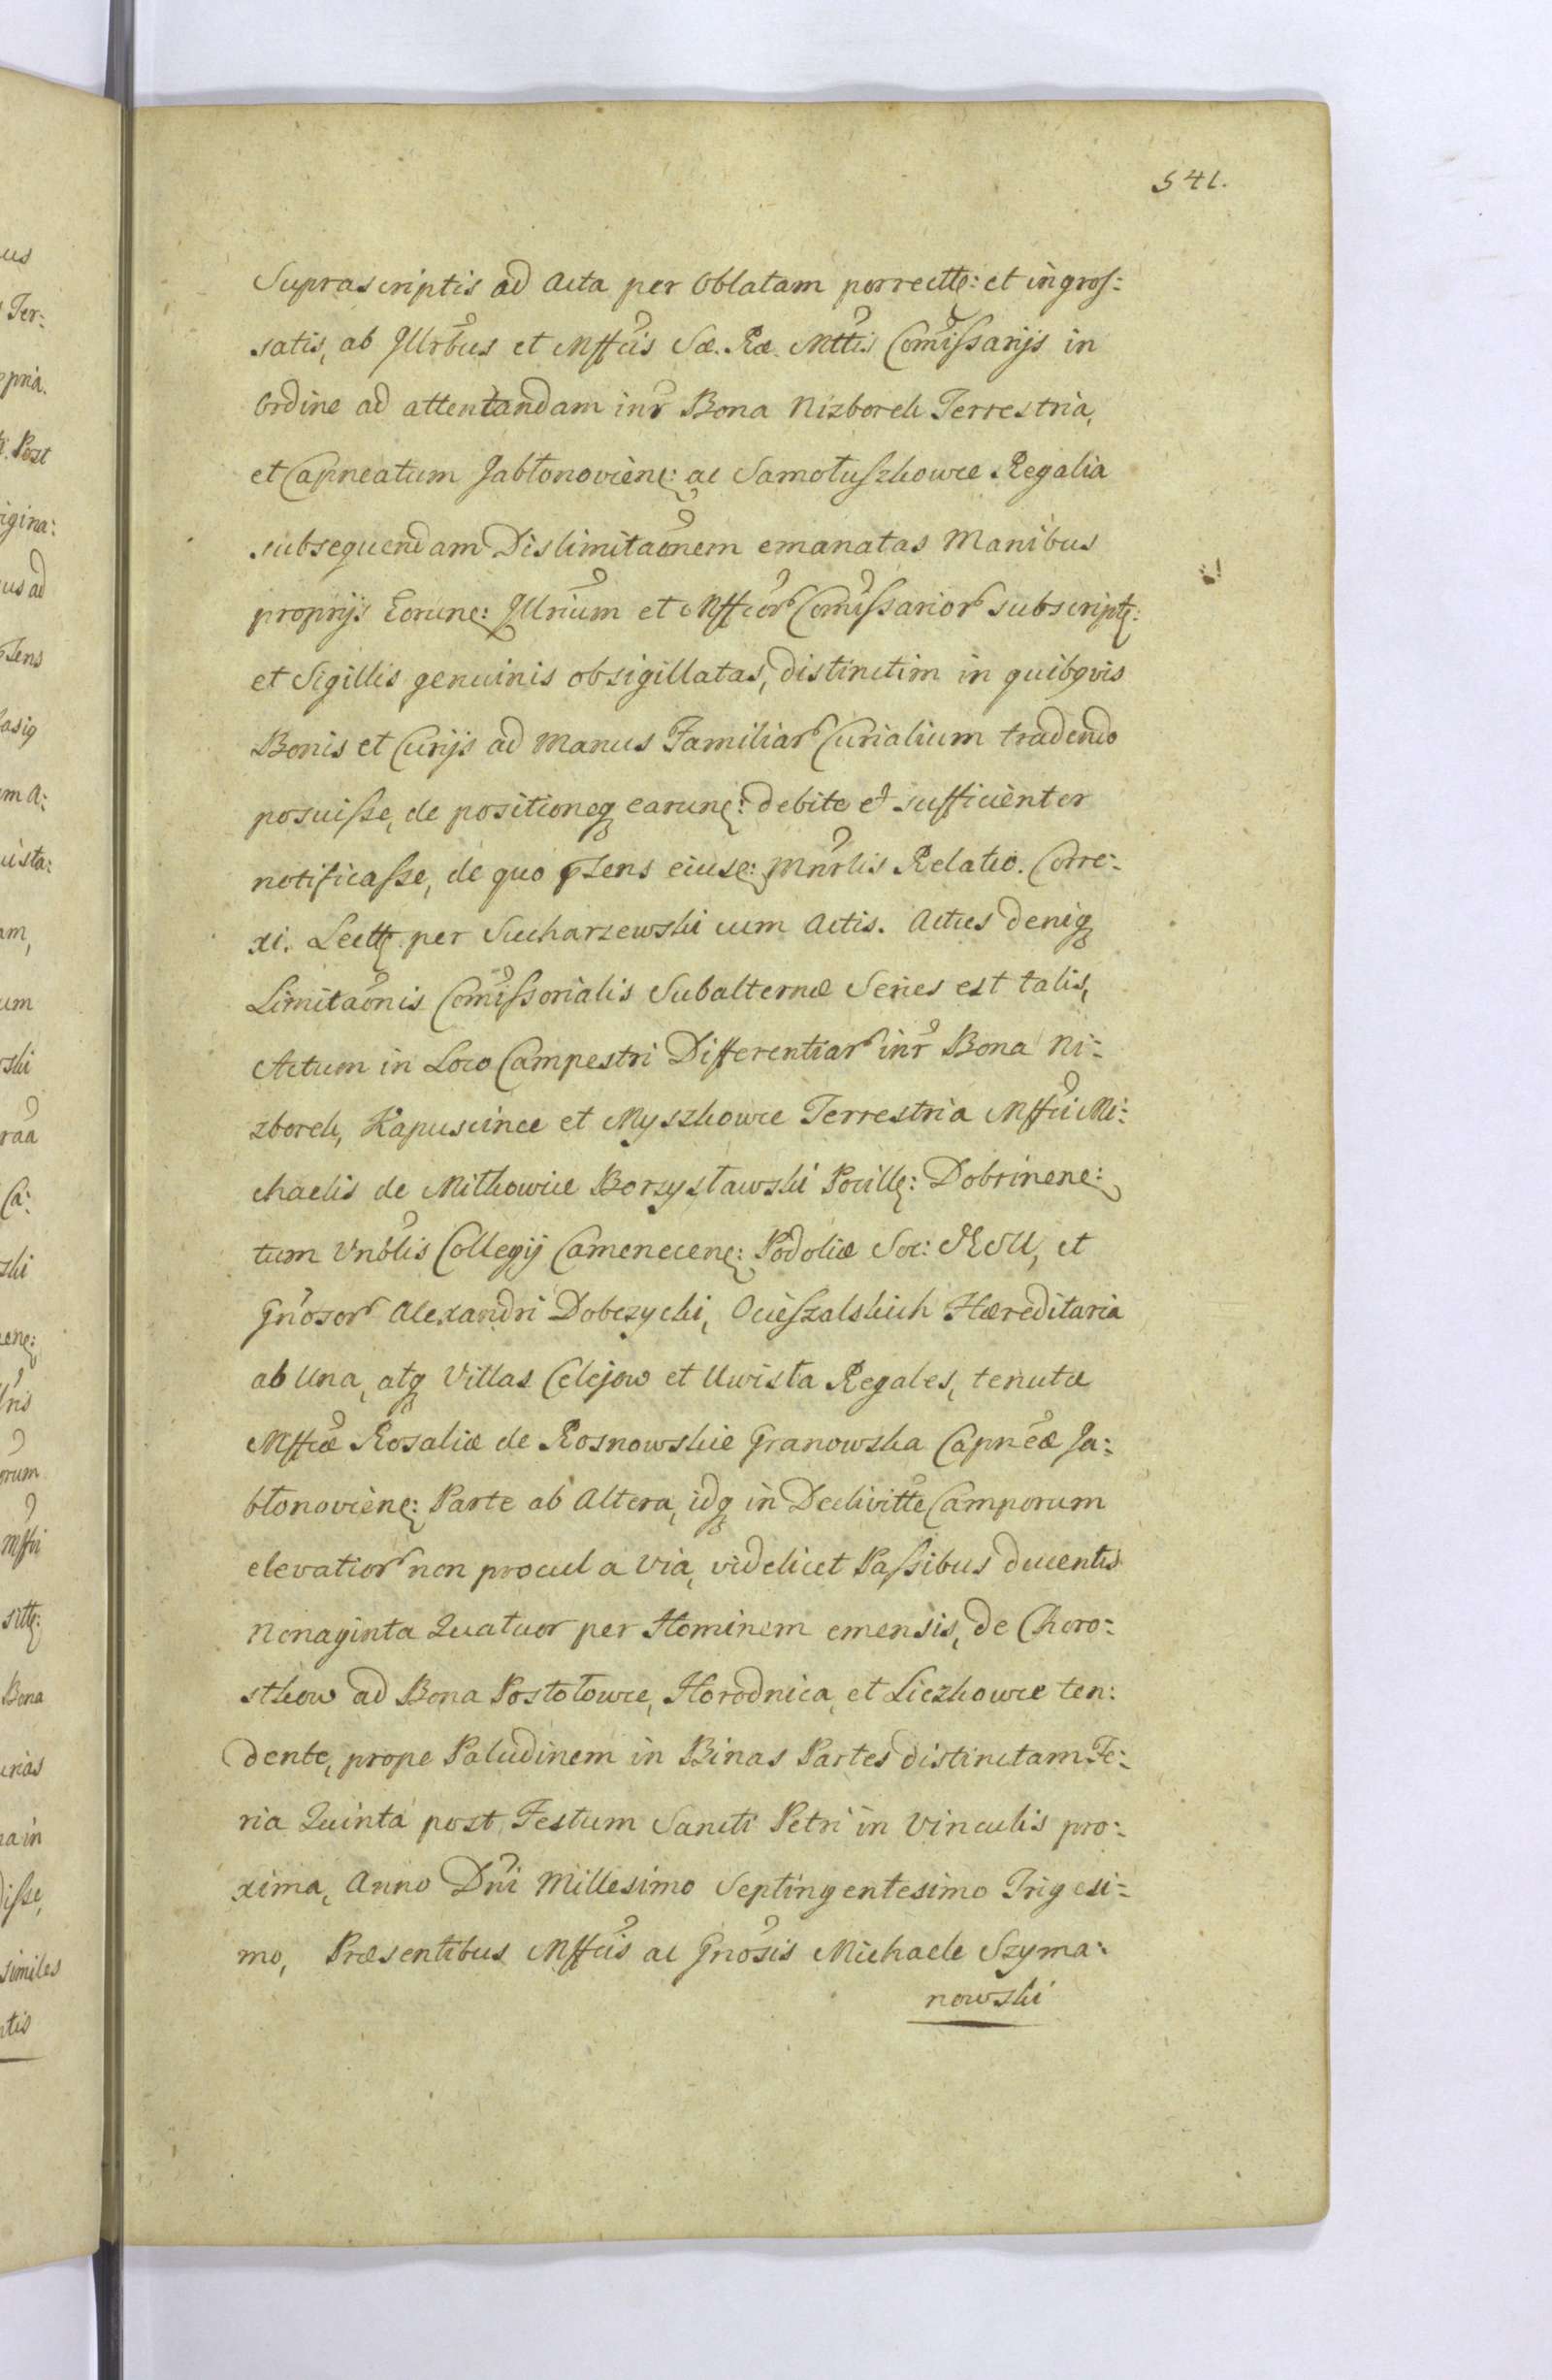 541.
Suprascriptis ad Acta per Oblatam porrectt: et ingros:
satis, ab Jllrbus et Mffcis Sæ. Ræ. Mttis Comissarijs in
Ordine ad attentandam inr Bona Nizboreh Terrestria,
et Capneatum Jabłonoviene: ac Samołuszkowce Regalia
subsequendam Dislimitaonem emanatas Manibus
proprijs Eorune: Jllrium et Mffcor Comissarior subscript:
et Sigillis genuinis obsigillatas, distinctim in quibqvis
Bonis et Curijs ad Manus Familiar Curialium tradendo
posuisse, de positioneq earune: debite et sufficienter
notificasse, de quo pTens eiuse: Mnrlis Relatio. Corre:
xi. Lectt per Sucharzewski cum Actis. Actus deniq
Limitaonis Comissorialis Subalternæ Series est talis,
Actum in Loco Campestri Differentiar inr Bona Ni:
zboreh, Kapuscince et Myszkowce Terrestria Mffci Mi:
chaelis de Mitkowice Borzysławski Pocill: Dobrinene:
tum Vnblis Collegij Camenecene: Podoliæ Soc: JESU, et
Gnosor Alexandri Dobczycki, Ocieszalskich Hæreditaria
ab Una, atq Villas Celejow et Uwisła Regales, tenutæ
Mffcæ Rosaliæ de Rosnowskie Granowska Capneæ Ja:
błonoviene: Parte ab Altera, idq in Declivitte Camporum
elevatior non procul a Via, videlicet Passibus ducentis
Nonaginta Quatuor per Hominem emensis, de Choro:
stkow ad Bona Postołowce, Horodnica, et Liczkowce ten:
dente, prope Paludinem in Binas Partes distinctam Fe:
ria Quinta post Festum Sancti Petri in Vinculis pro:
xima, Anno Dni Millesimo Septingentesimo Trigesi:
mo, Præsentibus Mffcis ac Gnosis Michaele Szyma:
nowski